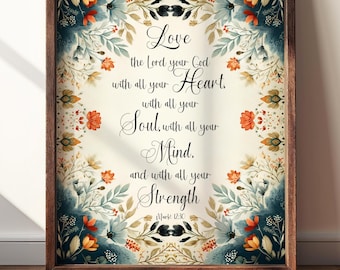 Love
the Lord your God
with all your Heart,
with all your
Soul, with all your
Mind,
and with all your
Strength
Mark 12:30